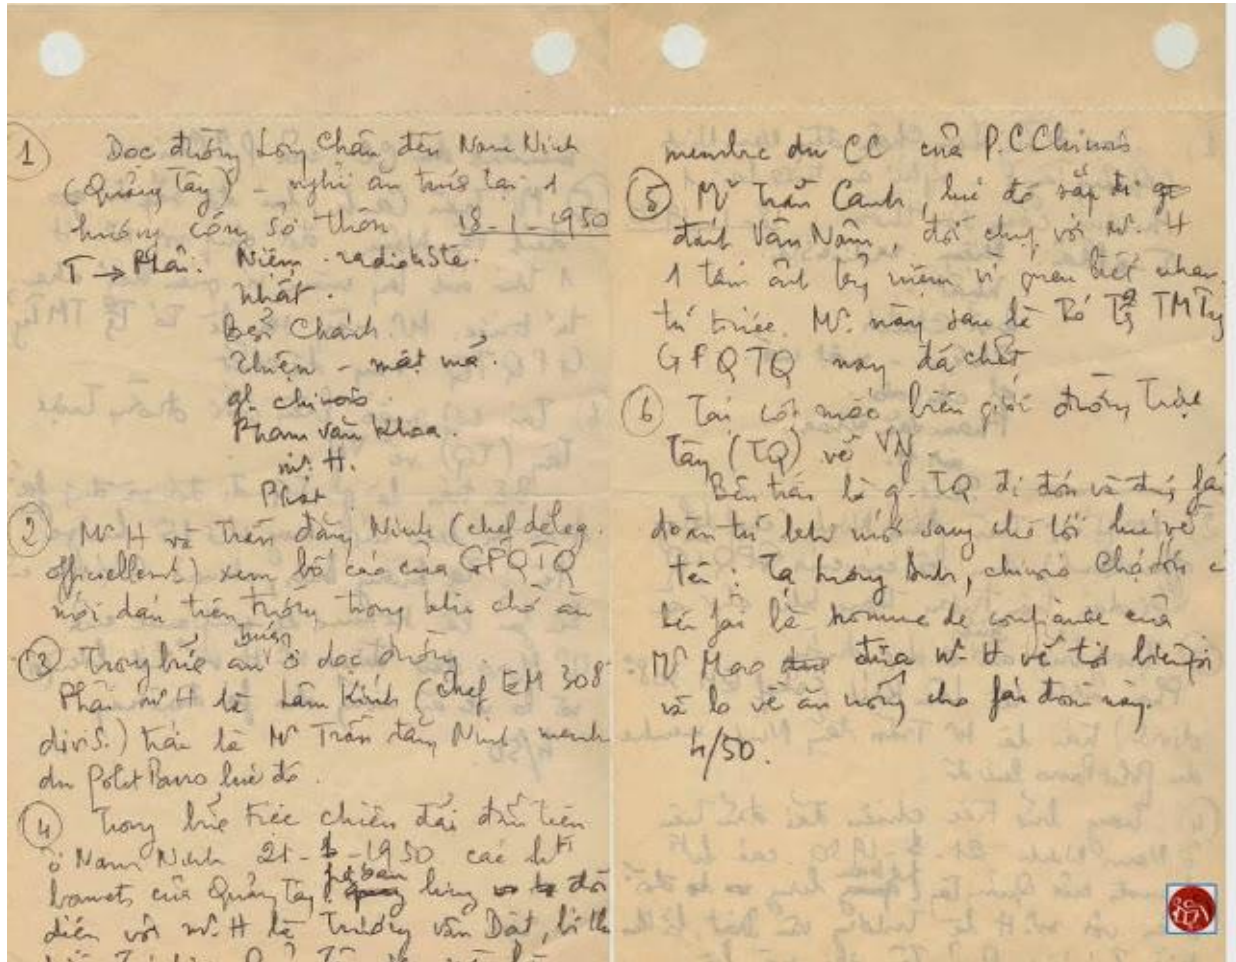 1 Dọc đường Long Châu đến Nam Ninh
(Quảng Tây) - nghỉ ăn trưa tại 1
hương công sở thôn 18-1-1950
T → Phải. Niệm - radioliste.
Nhất.
Bẩy Chánh.
Thiện - mật mã.
gl. chinois
Phạm Văn Khoa.
Mr. H.
Phát
2 Mr H và Trần Đăng Ninh (chef deleg.
officiellemt) xem bố cáo của GFQTQ
mới dán trên tường trong khu chợ ăn
3 Trong bữa ăn ở dọc đường
trưa
Phải Mr H là Lâm Kính (chef EM 308
divis.) trái là Mr Trần Đăng Ninh membre
du Polit Buro lúc đó.
4 Trong bữa tiệc chiêu đãi đầu tiên
ở Nam Ninh 21-1-1950 các
của Quảng Tây đối
diện với Mr. H là Trương Văn Dật, bí thư
membre du CC của P.C Chinois
5 Mr Trần Canh, lúc đó sắp đi
đánh Vân Nam, đổi chụp với Mr. H
1 tấm ảnh lấy niệm vì quen biết nhau
từ trước. Mr. này sau là Phó TMTg
GFQTQ nay đã chết
6 Tại cột mốc biên giới đường
Tây (TQ) về VN
Bên trái là gl. TQ đi đón và đưa fái
đoàn từ lúc mới sang cho tới lúc về
tên : Tạ
bên fải là homme de confiance của
Mr Mao đưa Mr. H về tới biên giới
và lo về ăn uống cho fái đoàn này.
4/50.